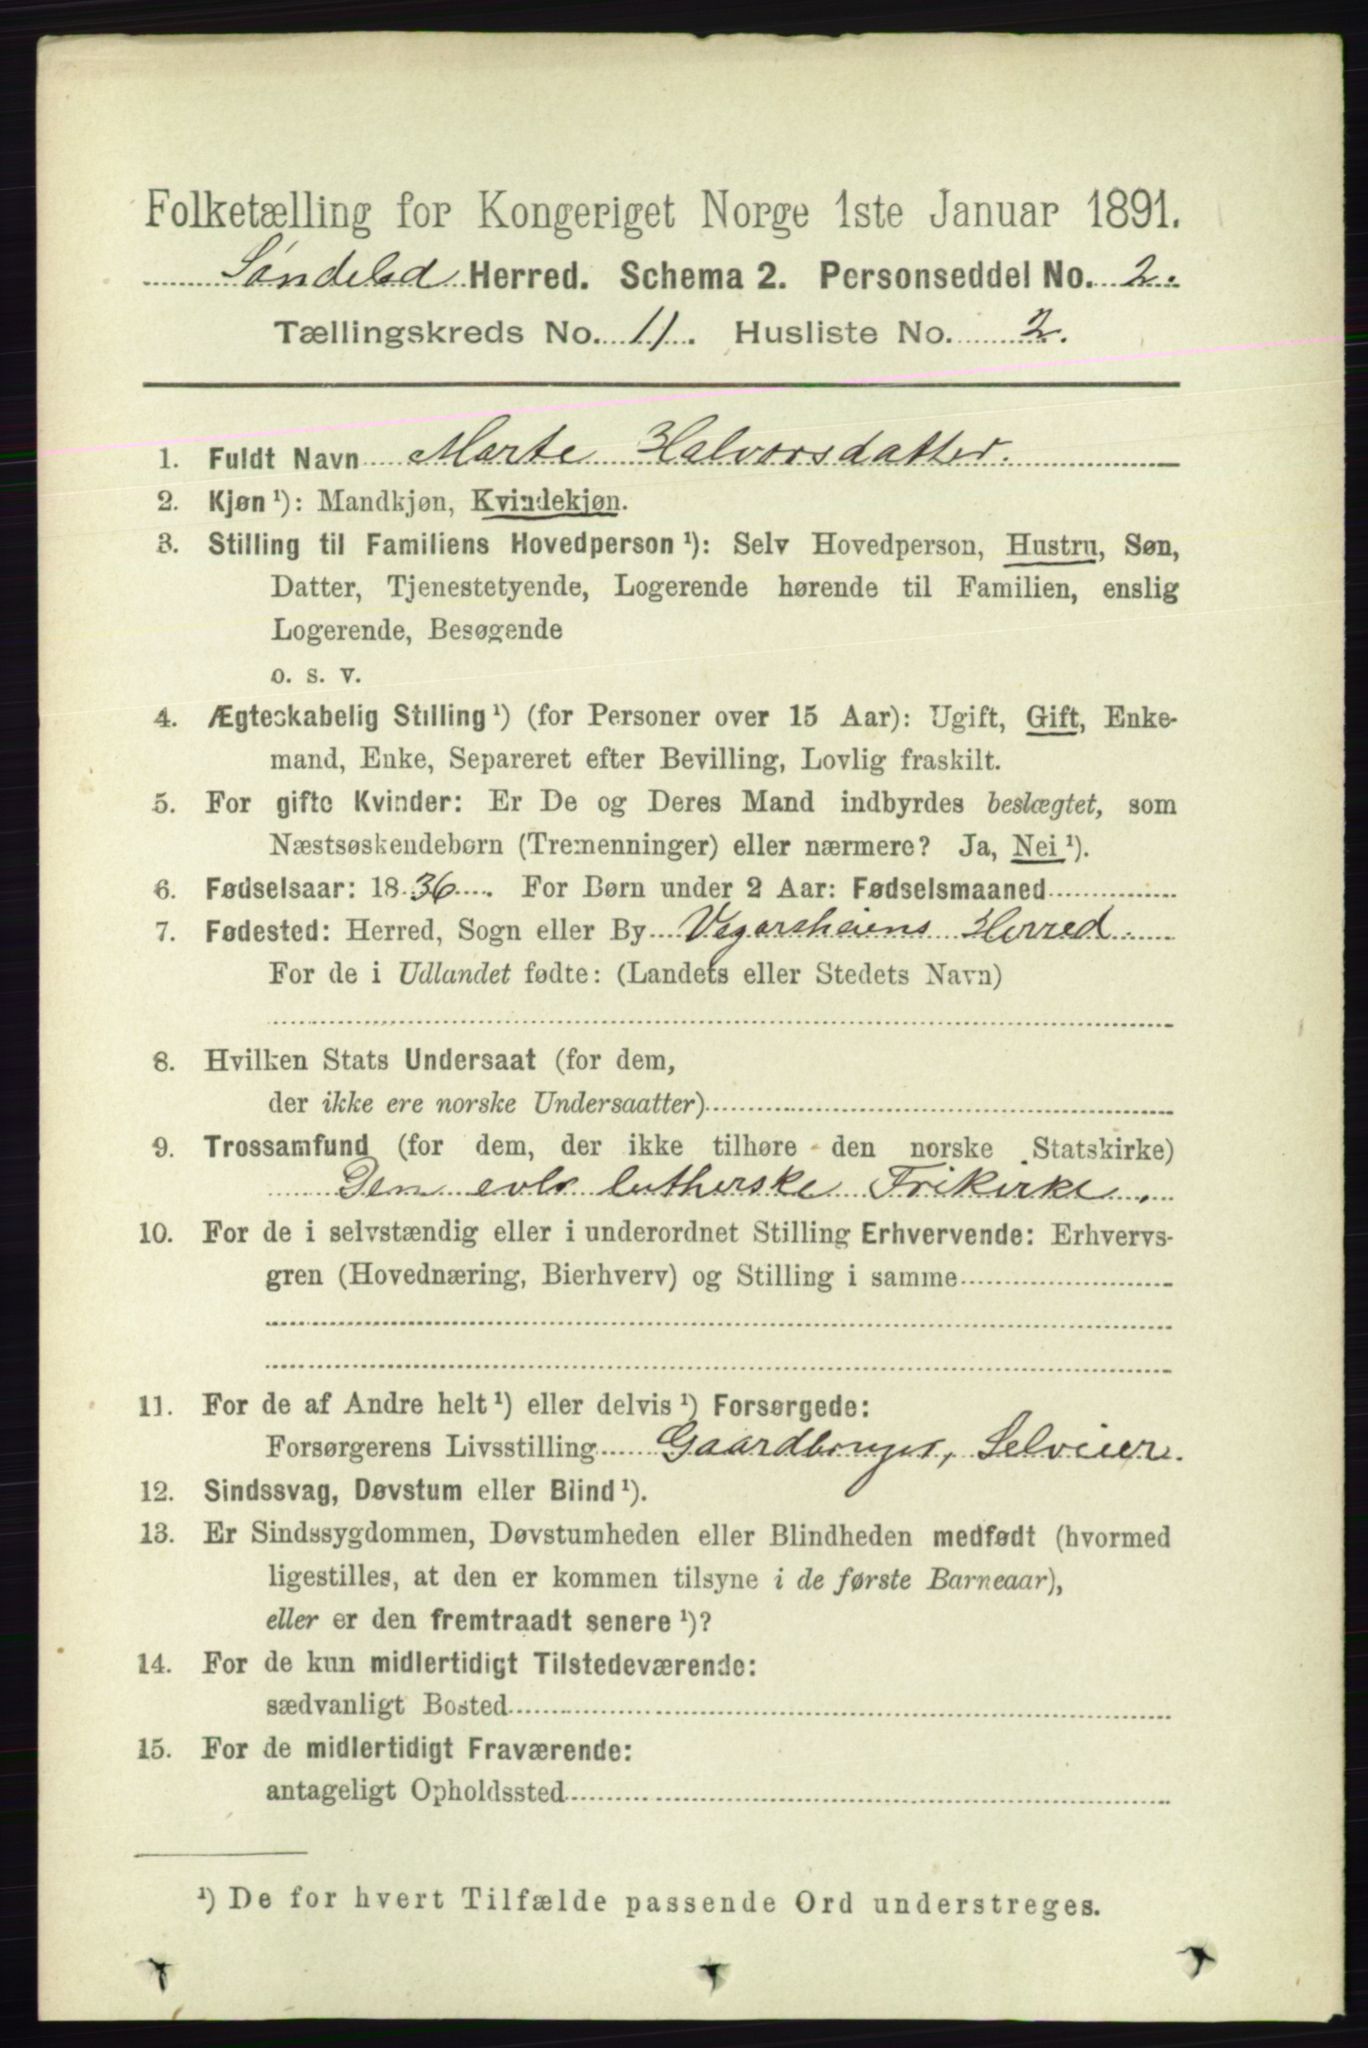 Folketælling for Kongeriget Norge 1ste Januar 1891.
Søndeled Herred. Schema 2. Personseddel No. 2.
Tællingskreds No. 11. Husliste No. 2.
1. Fuldt Navn Marte Halvorsdatter.
2. Kjøn¹): Mandkjøn, Kvindekjøn.
3. Stilling til Familiens Hovedperson¹): Selv Hovedperson, Hustru, Søn,
Datter, Tjenestetyende, Logerende hørende til Familien, enslig
Logerende, Besøgende
o. s. v.
4. Ægteskabelig Stilling¹) (for Personer over 15 Aar): Ugift, Gift, Enke-
mand, Enke, Separeret efter Bevilling, Lovlig fraskilt.
5. For gifte Kvinder: Er De og Deres Mand indbyrdes beslægtet, som
Næstsøskendebørn (Tremenninger) eller nærmere? Ja, Nei¹).
6. Fødselsaar: 1836. For Børn under 2 Aar: Fødselsmaaned
7. Fødested: Herred, Sogn eller By Vegarsheiens Herred.
For de i Udlandet fødte: (Landets eller Stedets Navn)
8. Hvilken Stats Undersaat (for dem,
der ikke ere norske Undersaatter)
9. Trossamfund (for dem, der ikke tilhøre den norske Statskirke)
Den evle lutherske Frikirke.
10. For de i selvstændig eller i underordnet Stilling Erhvervende: Erhvervs-
gren (Hovednæring, Bierhverv) og Stilling i samme
11. For de af Andre helt¹) eller delvis¹) Forsørgede:
Forsørgerens Livsstilling Gaardbruger, Selveier.
12. Sindssvag, Døvstum eller Blind¹).
13. Er Sindssygdommen, Døvstumheden eller Blindheden medfødt (hvormed
ligestilles, at den er kommen tilsyne i de første Barneaar),
eller er den fremtraadt senere¹)?
14. For de kun midlertidigt Tilstedeværende:
sædvanligt Bosted
15. For de midlertidigt Fraværende:
antageligt Opholdssted
¹) De for hvert Tilfælde passende Ord understreges.